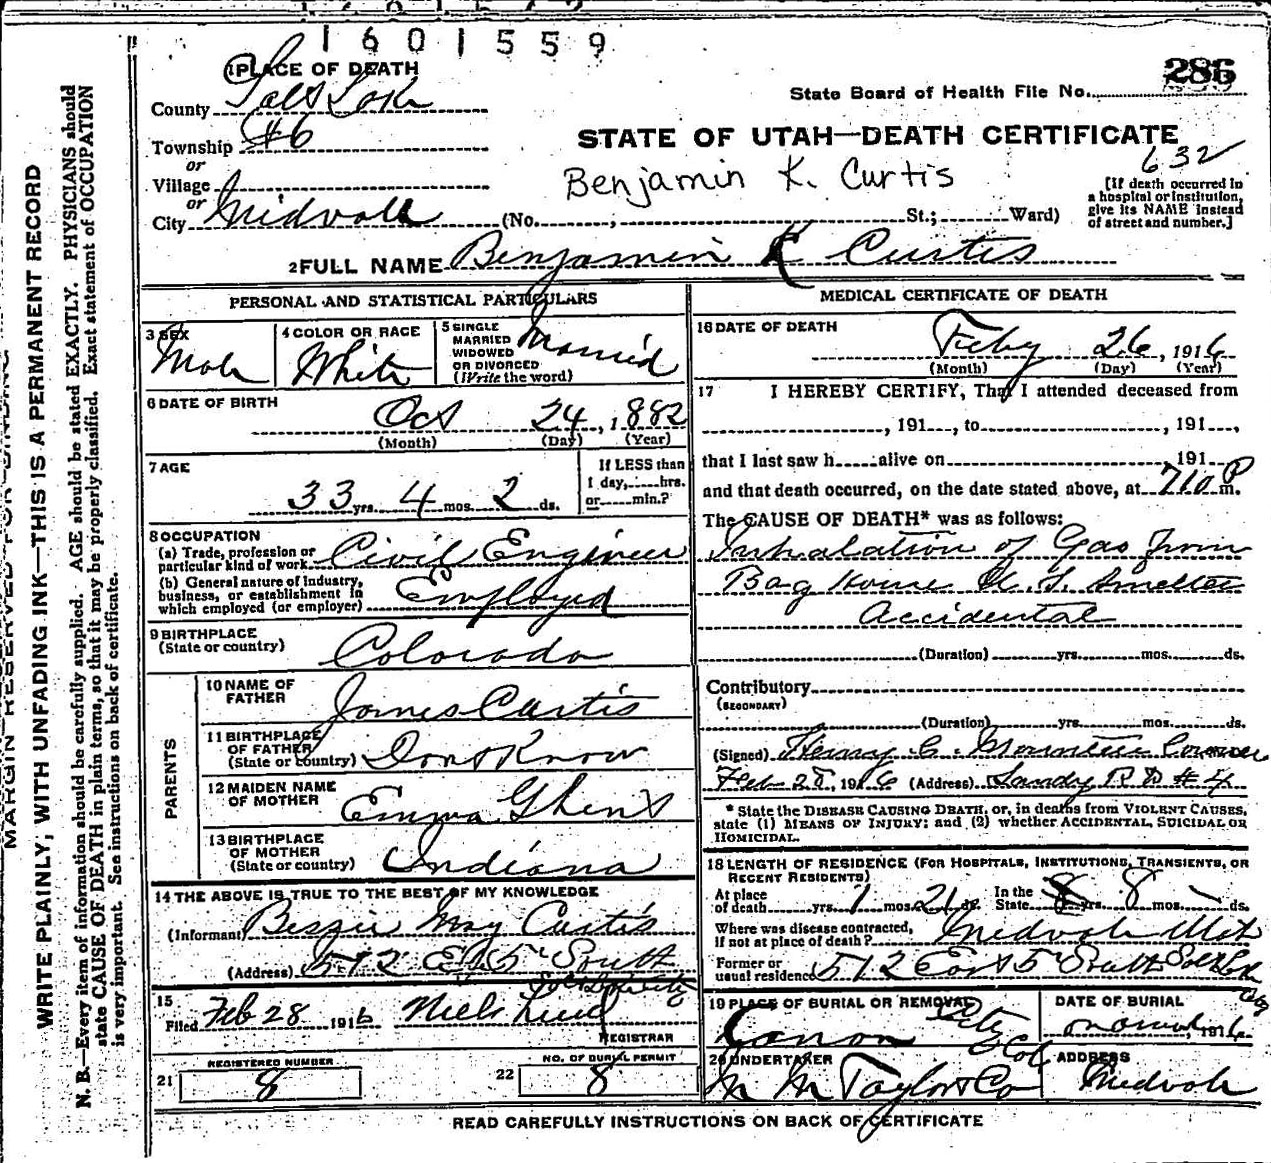 1601559
1 PLACE OF DEATH
286
County Salt Lake
State Board of Health File No.
Township #6
STATE OF UTAH—DEATH CERTIFICATE
or
632
Village
Benjamin K. Curtis
or
[If death occurred in
a hospital or institution,
give its NAME instead
of street and number.]
City Midvale (No. , St.; Ward)
2 FULL NAME Benjamin K Curtis
PERSONAL AND STATISTICAL PARTICULARS
3 SEX
Male
4 COLOR OR RACE
White
5 SINGLE
MARRIED
WIDOWED
OR DIVORCED
(Write the word)
Married
6 DATE OF BIRTH
Oct 24, 1882
(Month) (Day) (Year)
7 AGE
33 yrs. 4 mos. 2 ds.
If LESS than
1 day, hrs.
or min.?
8 OCCUPATION
(a) Trade, profession or
particular kind of work Civil Engineer
(b) General nature of Industry,
business, or establishment in
which employed (or employer) Employed
9 BIRTHPLACE
(State or country) Colorado
PARENTS
10 NAME OF
FATHER James Curtis
11 BIRTHPLACE
OF FATHER
(State or country) Dont Know
12 MAIDEN NAME
OF MOTHER Emma
13 BIRTHPLACE
OF MOTHER
(State or country) Indiana
14 THE ABOVE IS TRUE TO THE BEST OF MY KNOWLEDGE
(Informant) Bessie May Curtis
(Address) 512 East 5th South
Salt Lake City
15
Filed Feb 28 1916 Niels Lind
REGISTRAR
REGISTERED NUMBER
21 8
NO. OF BURIAL PERMIT
22 8
MEDICAL CERTIFICATE OF DEATH
16 DATE OF DEATH
Feby 26, 1916
(Month) (Day) (Year)
17 I HEREBY CERTIFY, That I attended deceased from
, 191 , to , 191 ,
that I last saw h alive on 191
and that death occurred, on the date stated above, at 710 P m.
The CAUSE OF DEATH* was as follows:
Inhalation of Gas from
Bag House U. S. Smelter
Accidental
(Duration) yrs. mos. ds.
Contributory
(SECONDARY)
(Duration) yrs. mos. ds.
(Signed) Henry C. Mounteer Coroner
Feb 28, 1916 (Address) Sandy R D #4
* State the DISEASE CAUSING DEATH, or, in deaths from VIOLENT CAUSES,
state (1) MEANS OF INJURY; and (2) whether ACCIDENTAL, SUICIDAL OR
HOMICIDAL.
18 LENGTH OF RESIDENCE (FOR HOSPITALS, INSTITUTIONS, TRANSIENTS, OR
RECENT RESIDENTS)
At place
of death yrs. 1 mos. 21 ds.
In the
State 8 yrs. 8 mos. ds.
Where was disease contracted,
if not at place of death? Midvale Utah
Former or
usual residence 512 East 5th South Salt Lake City
19 PLACE OF BURIAL OR REMOVAL
Canon City Col
DATE OF BURIAL
1916
20 UNDERTAKER
Taylor & Co
ADDRESS
Midvale
READ CAREFULLY INSTRUCTIONS ON BACK OF CERTIFICATE
MARGIN RESERVED FOR BINDING
WRITE PLAINLY, WITH UNFADING INK—THIS IS A PERMANENT RECORD
N. B.—Every item of information should be carefully supplied. AGE should be stated EXACTLY. PHYSICIANS should
state CAUSE OF DEATH in plain terms, so that it may be properly classified. Exact statement of OCCUPATION
is very important. See instructions on back of certificate.